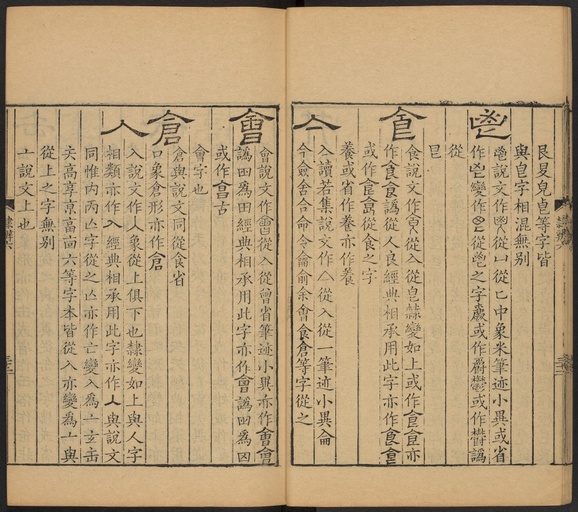 艮夏皃皀等字皆
與皀字相混無别
鬯
鬯說文作鬯從凵從匕中象米筆迹小異或省
作鬯變作鬯從鬯之字或作鬱或作欝譌
從
皀
食
食說文作食從亼從皀隸變如上或作食亦
作食食譌從人良經典相承用此字亦作食
或作食從食之字
養或省作養亦作養
亼
亼讀若集說文作亼從入從一筆迹小異侖
今僉舍合命令龠俞余會食倉等字從之
會
會說文作會從亼從曾省筆迹小異亦作會會
譌田爲田經典相承用此字亦作會譌田爲曰
或作會古
會字也
倉
倉與說文同從食省
口象倉形亦作倉
入
入說文作入象從上俱下也隸變如上與人字
相類亦作入經典相承用此字亦作人與說文
同惟内兩亾字從之亾亦作亡變入爲亠玄缶
矢高享京亩六等字本皆從入亦變爲亠與
從上之字無别
亠說文上也